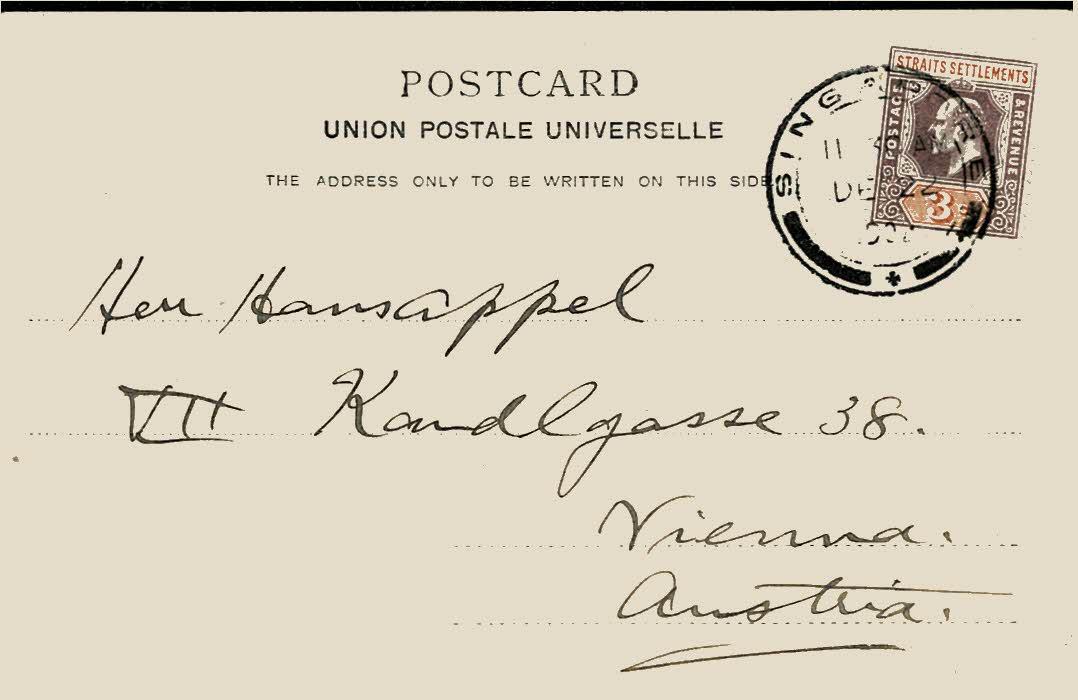 POSTCARD
UNION POSTALE UNIVERSELLE
THE ADDRESS ONLY TO BE WRITTEN ON THIS SIDE
STRAITS SETTLEMENTS
POSTAGE
& REVENUE
3
SING
11 AM
DE 22
Herr Hans Appel
VII Kandlgasse 38.
Vienna.
Austria.